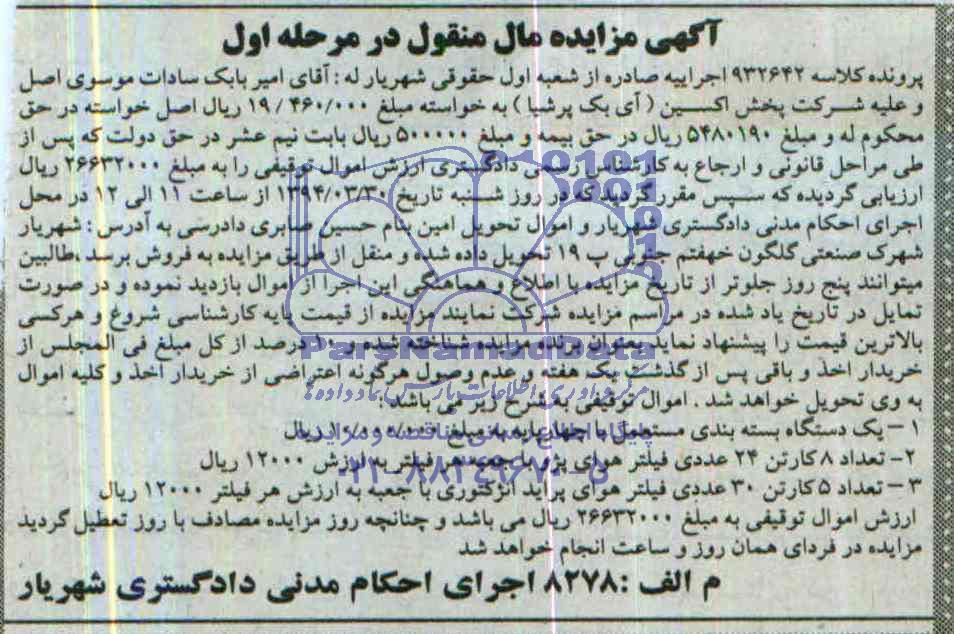 آگهی مزایده مال منقول در مرحله اول
پرونده کلاسه ۹۳۲۶۴۲ اجراییه صادره از شعبه اول حقوقی شهریار له : آقای امیر بابک سادات موسوی اصل
و علیه شرکت پخش اکسین ( آی بک پرشیا ) به خواسته مبلغ ۱۹/۴۶۰/۰۰۰ ریال اصل خواسته در حق
محکوم له و مبلغ ۵۴۸۰۱۹۰ ریال در حق بیمه و مبلغ ۵۰۰۰۰۰ ریال بابت نیم عشر در حق دولت که پس از
طی مراحل قانونی و ارجاع به کارشناس رسمی دادگستری ارزش اموال توقیفی را به مبلغ ۲۶۶۳۲۰۰۰ ریال
ارزیابی گردیده که سپس مقرر گردید که در روز شنبه تاریخ ۱۳۹۴/۰۳/۳۰ از ساعت ۱۱ الی ۱۲ در محل
اجرای احکام مدنی دادگستری شهریار و اموال تحویل امین بنام حسین صابری دادرسی به آدرس : شهریار
شهرک صنعتی گلگون خهفتم جنوبی پ ۱۹ تحویل داده شده و منقل از طریق مزایده به فروش برسد ،طالبین
میتوانند پنج روز جلوتر از تاریخ مزایده با اطلاع و هماهنگی این اجرا از اموال بازدید نموده و در صورت
تمایل در تاریخ یاد شده در مراسم مزایده شرکت نمایند مزایده از قیمت پایه کارشناسی شروع و هرکسی
بالاترین قیمت را پیشنهاد نماید بعنوان برنده مزایده شناخته شده و ۱۰ درصد از کل مبلغ فی المجلس از
خریدار اخذ و باقی پس از گذشت یک هفته و عدم وصول هرگونه اعتراضی از خریدار اخذ و کلیه اموال
به وی تحویل خواهد شد . اموال توقیفی بشرح زیر می باشد :
۱ – یک دستگاه بسته بندی مستعمل با چهارپایه به مبلغ ۱۰/۰۰۰/۰۰۰ ریال
۲- تعداد ۸ کارتن ۲۴ عددی فیلتر هوای پژو با جعبه هر فیلتر به ارزش ۱۲۰۰۰ ریال
۳ – تعداد ۵ کارتن ۳۰ عددی فیلتر هوای پراید انژکتوری با جعبه به ارزش هر فیلتر ۱۲۰۰۰ ریال
ارزش اموال توقیفی به مبلغ ۲۶۶۳۲۰۰۰ ریال می باشد و چنانچه روز مزایده مصادف با روز تعطیل گردید
مزایده در فردای همان روز و ساعت انجام خواهد شد
م الف :۸۲۷۸ اجرای احکام مدنی دادگستری شهریار
ParsNamadData
مرکز فرآوری اطلاعات پارس نماد داده ها
پایگاه اطلاع رسانی مناقصه و مزایده
۰۲۱-۸۸۳۴۹۶۷۰-۵